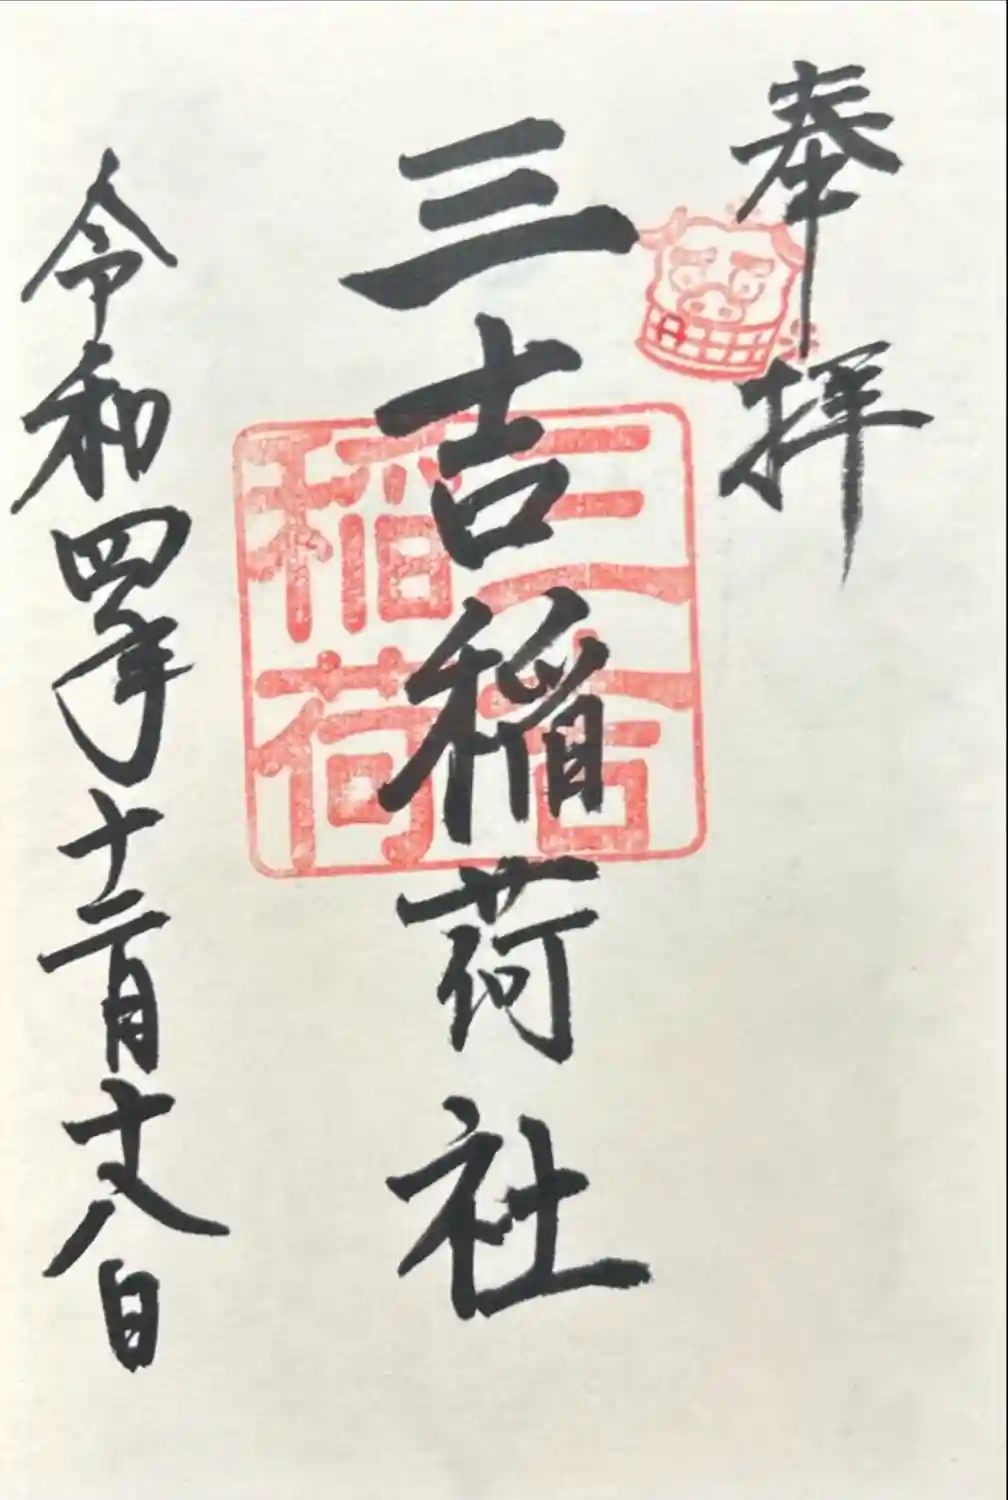 奉拝
三吉稲荷社
三吉
稲荷
令和四年十二月廿八日